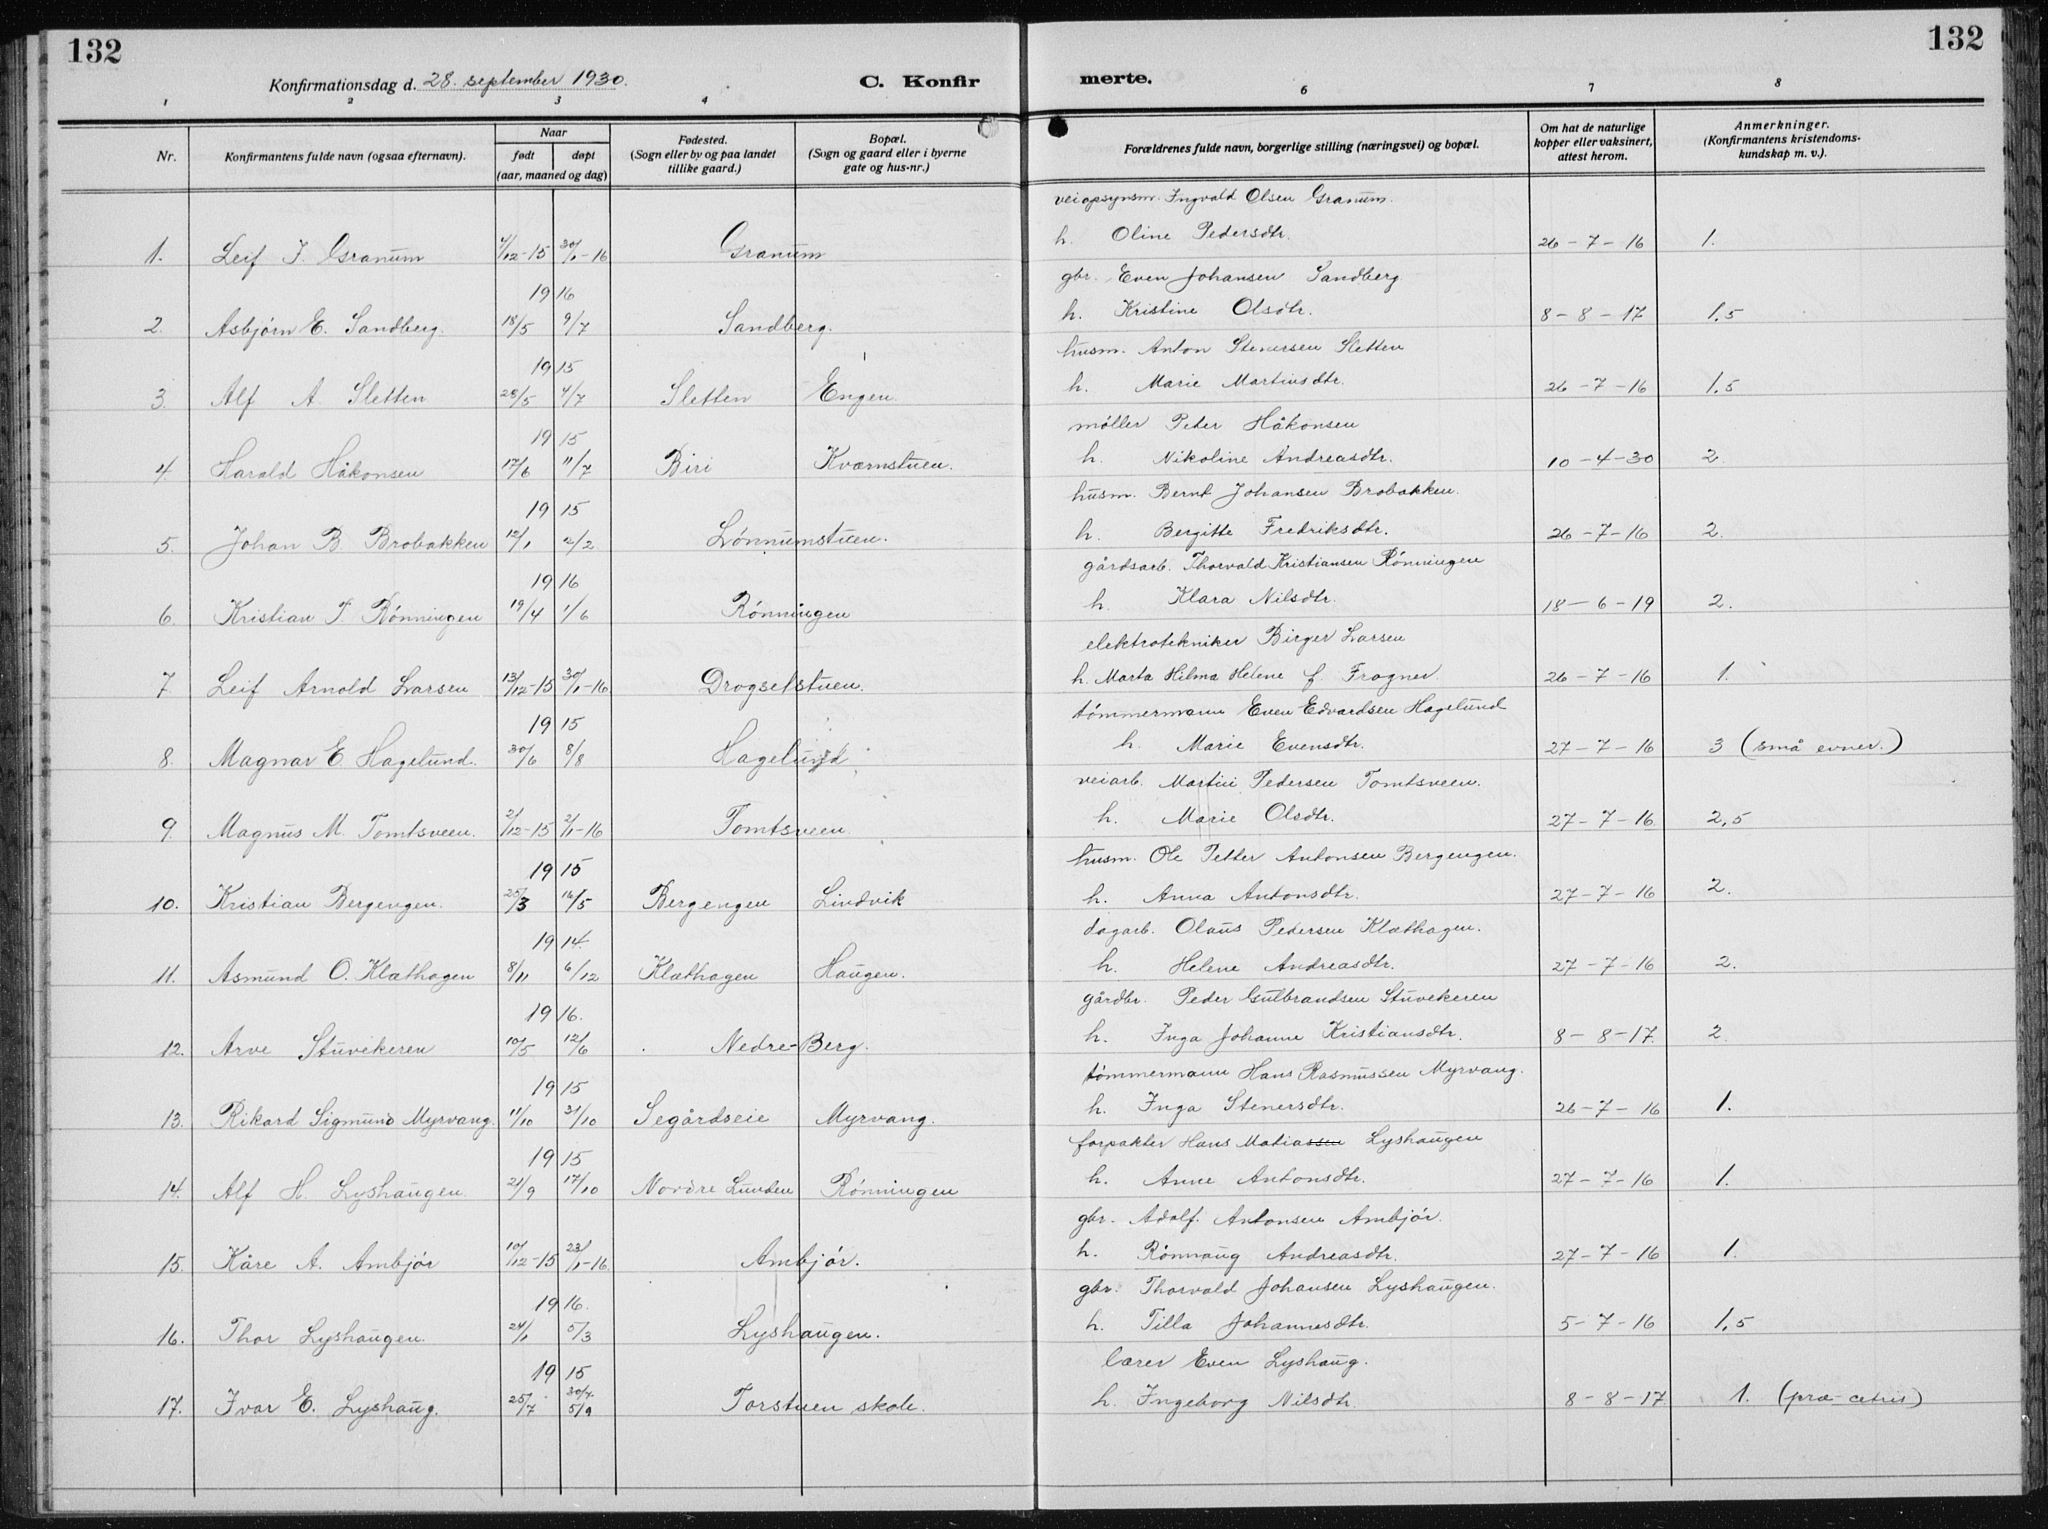 132
132
Konfirmationsdag d. 28. september 1930.
C. Konfir
merte.
1 2 3 4 6 7 8
Nr.
Konfirmantens fulde navn (ogsaa efternavn).
Naar
født døpt
(aar, maaned og dag)
Fødested.
(Sogn eller by og paa landet
tillike gaard.)
Bopæl.
(Sogn og gaard eller i byerne
gate og hus-nr.)
Forældrenes fulde navn, borgerlige stilling (næringsvei) og bopæl.
Om hat de naturlige
kopper eller vaksinert,
attest herom.
Anmerkninger.
(Konfirmantens kristendoms-
kundskap m. v.).
veiopsynsm. Ingvald Olsen Granum.
1. Leif I. Granum 4/12-15 30/1-16 Granum h. Oline Pedersdtr. 26-7-16 1.
gbr. Even Johansen Sandberg
19 16
2. Asbjørn E. Sandberg. 18/5 9/7 Sandberg. h. Kristine Olsdtr. 8-8-17 1,5
husm. Anton Stenersen Sletten
19 15
3. Alf A Sletten 28/5 4/7 Sletten Engen. h. Marie Martinsdtr. 26-7-16 1,5
møller Peter Håkonsen
19 15
4. Harald Håkonsen 17/6 11/7 Biri Kværnstuen. h. Nikoline Andreasdtr. 10-4-30 2.
husm. Bernt Johansen Brobakken.
19 15
5. Johan B. Brobakken 12/1 2/2 Lønnumstuen. h. Bergitte Fredriksdtr. 26-7-16 2.
gårdsarb. Thorvald Kristiansen Rønningen
19 16
6. Kristian T. Rønningen 19/4 1/6 Rønningen h. Klara Nilsdtr. 18-6-19 2.
elektrotekniker Birger Larsen
7 Leif Arnold Larsen 13/12-15 30/1-16 Drogsetstuen. h. Marta Hilma Helene f. Frogner 26-7-16 1.
tømmermann Even Edvardsen Hagelund
19 15
8. Magnar E. Hagelund. 30/6 8/8 Hagelund h. Marie Evensdtr. 27-7-16 3 (små evner.)
veiarb. Martin Pedersen Tomtsveen.
9. Magnus M. Tomtsveen. 2/12-15 2/1-16 Tomtsveen. h. Marie Olsdtr. 27-7-16 2,5
husm. Ole Petter Antonsen Bergengen.
19 15
10. Kristian Bergengen. 25/3 16/5 Bergengen Lindvik h. Anna Antonsdtr. 27-7-16 2.
dagarb. Olaus Pedersen Klæthagen.
19 14.
11. Asmund O. Klæthagen 8/11 6/12 Klæthagen Haugen. h. Helene Andreasdtr. 27-7-16 2.
gårdbr. Peder Gulbrandsen Stuvekeren
19 16.
12. Arve Stuvekeren 10/5 12/6 Nedre-Berg. h. Inga Johanne Kristiansdtr. 8-8-17. 2
tømmermann Hans Rasmussen Myrvang.
19 15
13. Rikard Sigmund Myrvang. 11/10 31/10 Segårdseie Myrvang. h. Inga Stenersdtr. 26-7-16 1.
forpakter Hans Matiassen Lyshaugen
19 15
14. Alf H. Lyshaugen 21/9 17/10 Nordre Lunden Rønningen h. Anne Antonsdtr. 27-7-16 1.
gbr. Adolf. Antonsen Ambjør.
15. Kåre A. Ambjør 10/12-15 23/1-16 Ambjør. h. Rønnaug Andreasdtr. 27-7-16 1.
gbr. Thorvald Johansen Lyshaugen.
19 16.
16. Thor Lyshaugen. 24/1 5/3 Lyshaugen. h. Tilla Johannesdtr. 5-7-16 1,5
lærer Even Lyshaug.
19 15
17. Ivar E. Lyshaug. 25/7 30/7. 5/9 Torstuen skole. h. Ingeborg Nilsdtr. 8-8-17 1. (præ-cetris)